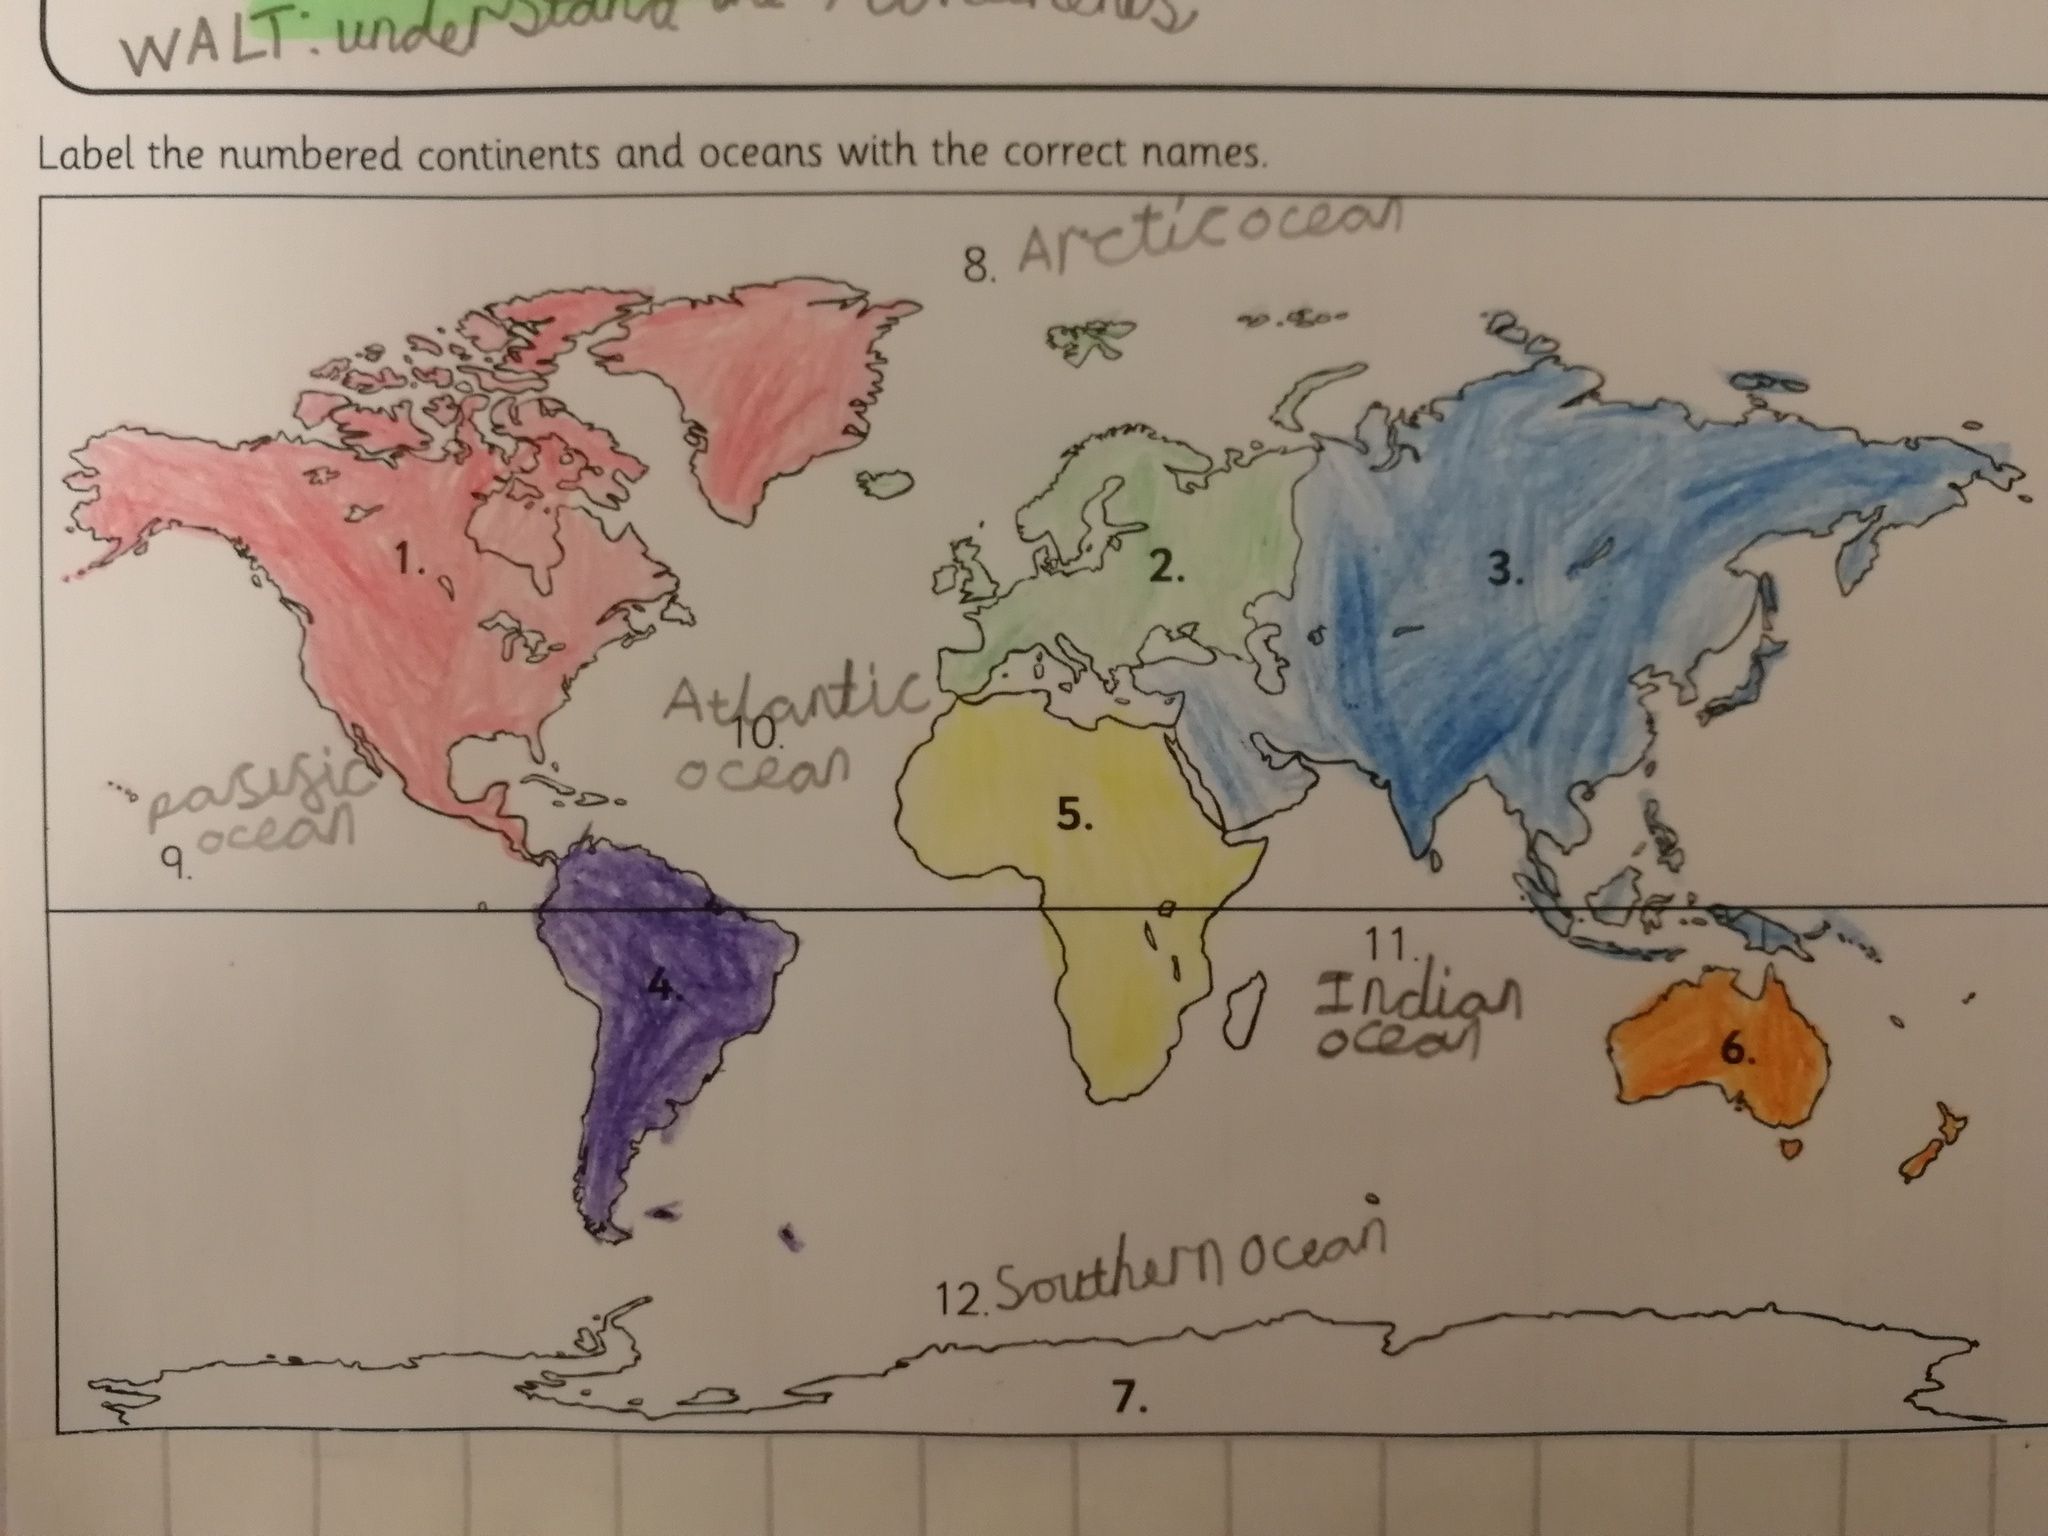 WALT: understand the 7 continents
Label the numbered continents and oceans with the correct names.
8. Arctic ocean
1.
2.
3.
Atlantic
10.
ocean
pasific
ocean
9.
5.
4.
11.
Indian
ocean
6.
12. Southern ocean
7.